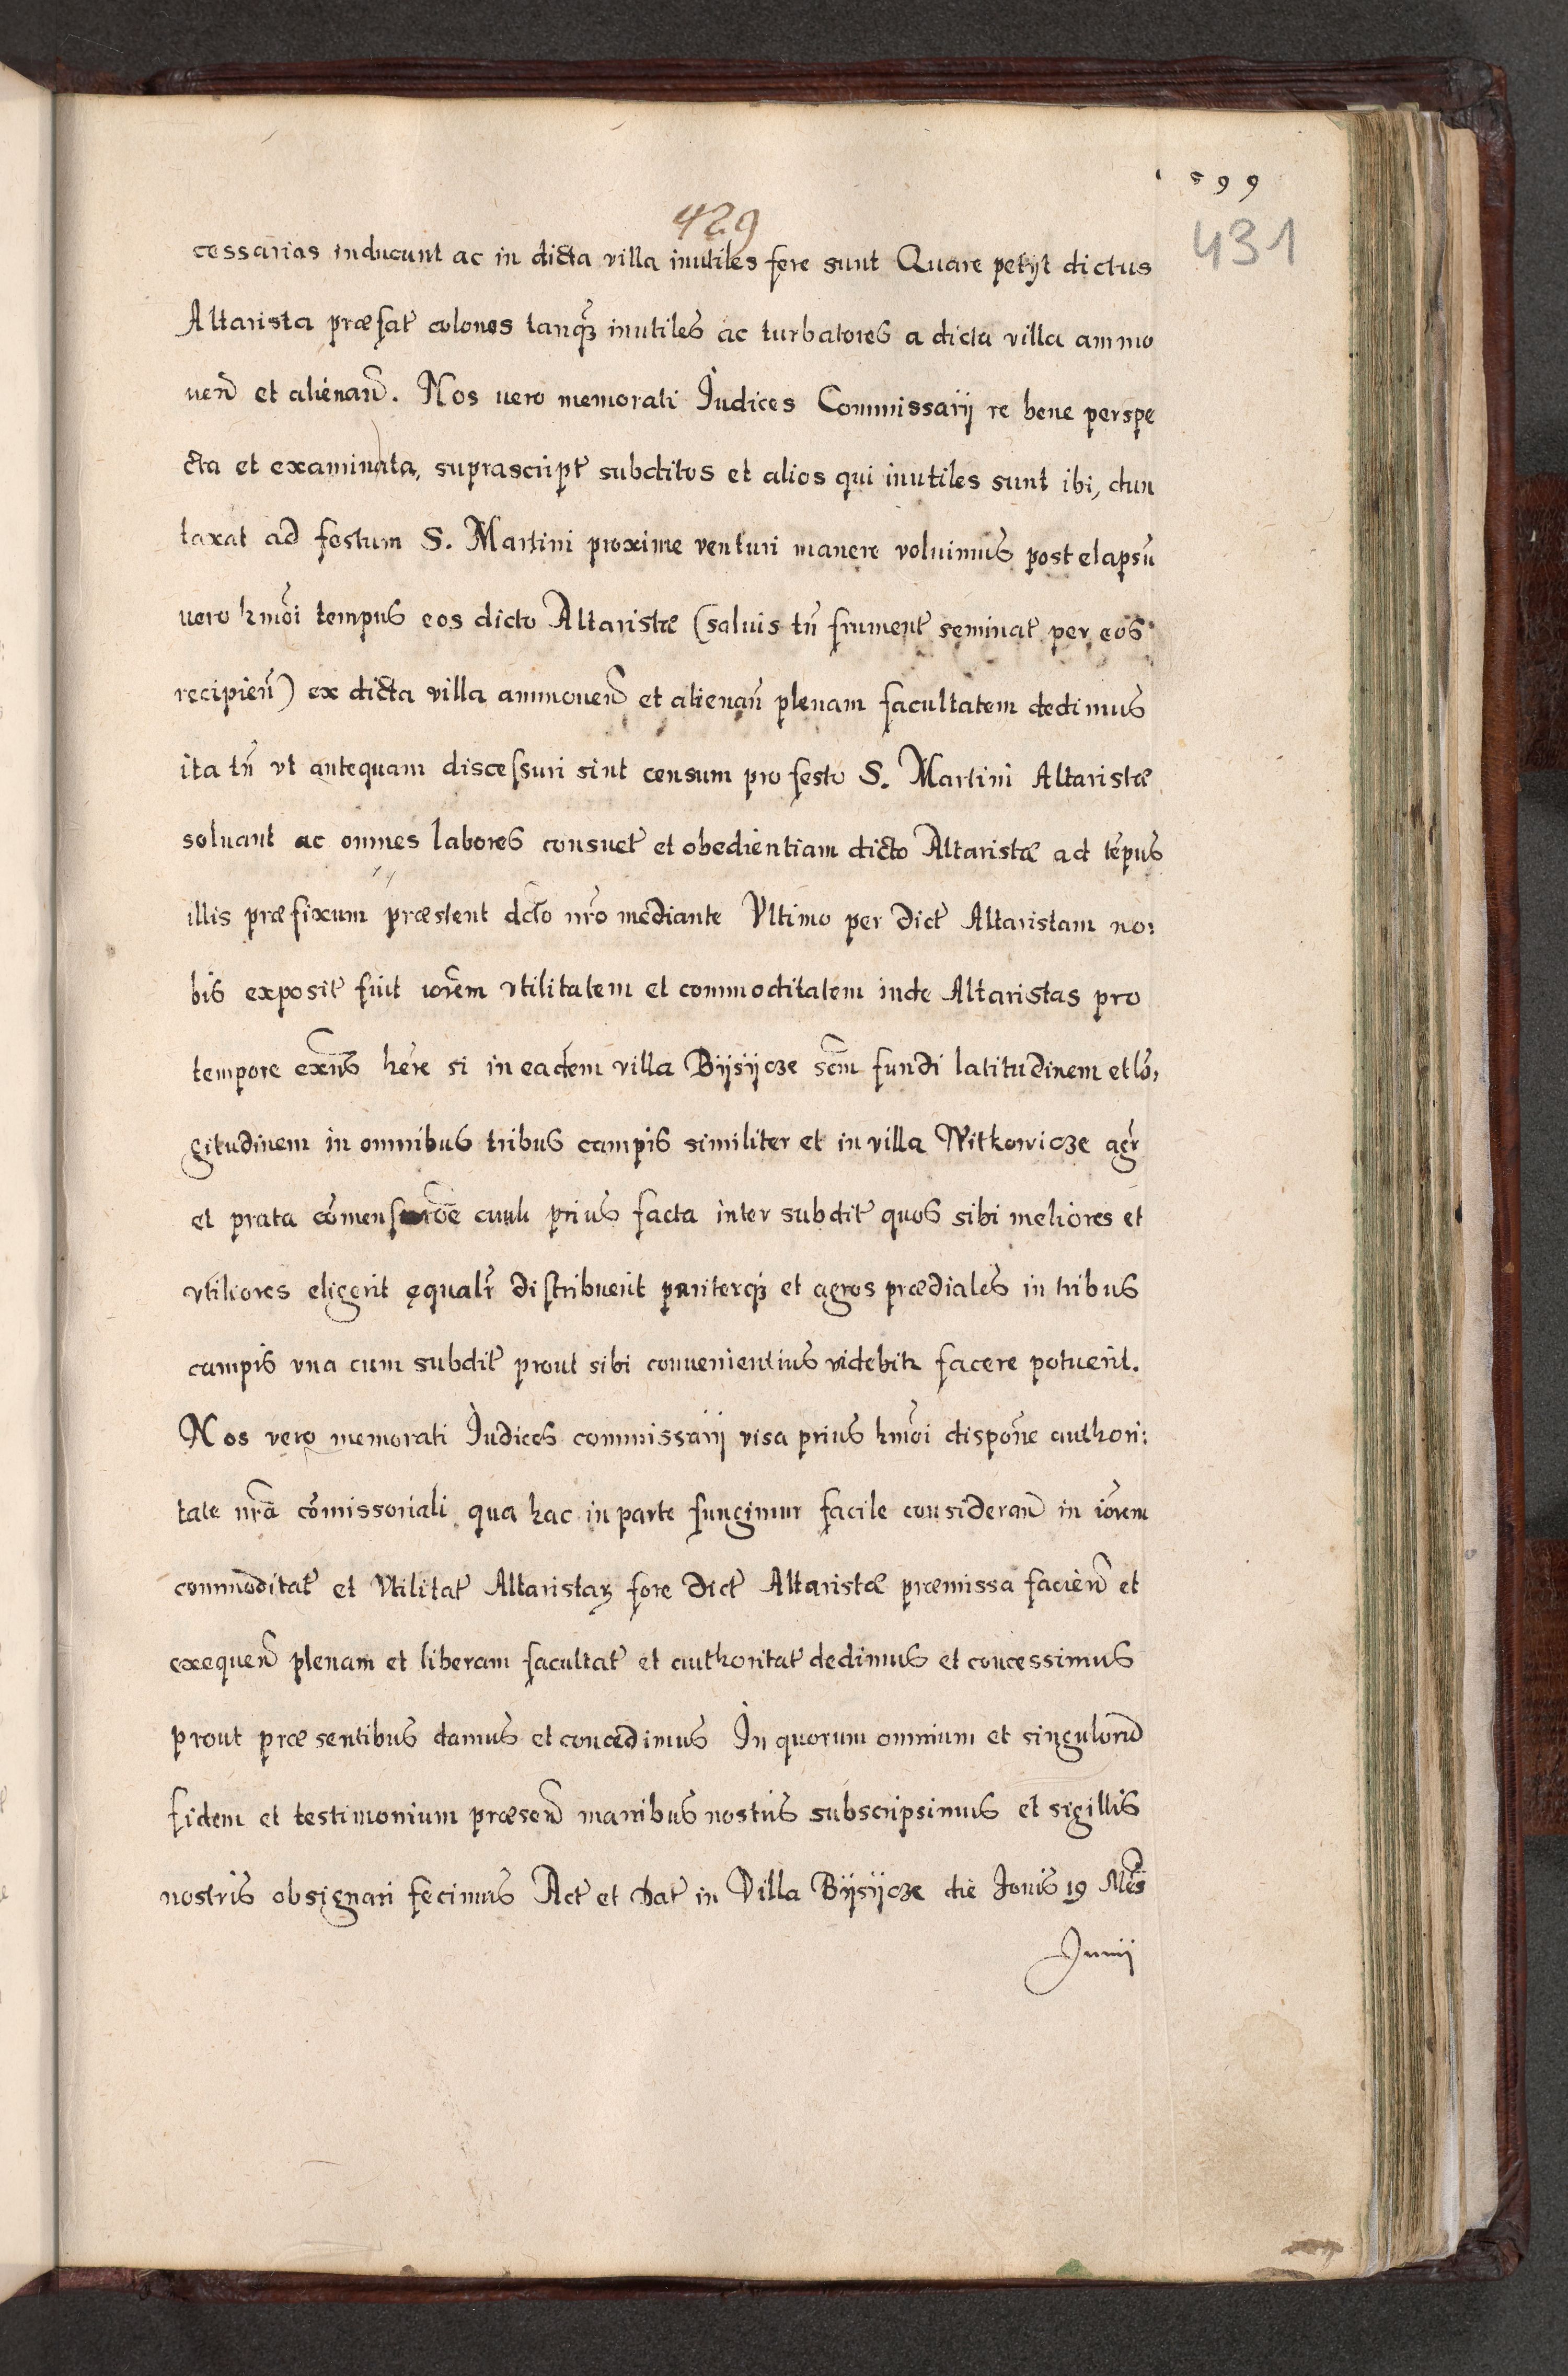 599
429
431
cessarias inducunt ac in dicta villa inutiles fere sunt Quare petijt dictus
Altarista præfat̃ colonos tanq̃ȝ inutiles ac turbatores a dicta villa ammo
ueñ et alienañ. Nos uero memorati Iudices Commissarij re bene perspe
cta et examinata, suprascript̃ subditos et alios qui inutiles sunt ibi, dun
taxat ad festum S. Martini proxime venturi manere voluimus post elapsũ
uero hmõi tempus eos dicto Altaristæ (saluis tñ frument̃ seminat̃ per eos
recipieñ) ex dicta villa ammoueñ et alienañ plenam facultatem dedimus
ita tñ vt antequam discessuri sint censum pro festo S. Martini Altaristæ
soluant ac omnes labores consuet̃ et obedientiam dicto Altaristæ ad tẽpus
illis præfixum præstent dcto nr̃o mediante Vltimo per dict̃ Altaristam no:
bis exposit̃ fuit iorẽm vtilitatem et commoditatem inde Altaristas pro
tempore exñs hẽre si in eadem villa Bijsijcze scm̃ fundi latitudinem et lõ,
gitudinem in omnibus tribus campis similiter et in villa Witkowicze agr̃
et prata cõmensurõe prius facta inter subdit̃ quos sibi meliores et
vtiliores eligerit ęqualr̃ distribuerit pariterqȝ et agros prædiales in tribus
campis vna cum subdit̃ prout sibi conuenientius videbitr facere potuerit.
Nos vero memorati Iudices commissarij visa prius hmõi dispoñe authori:
tate nr̃a cõmissoriali qua hac in parte fungimur facile considerañ in iorẽm
commoditat̃ et Vtilitat̃ Altaristaꝝ fore dict̃ Altaristæ præmissa facieñ et
exequeñ plenam et liberam facultat̃ et authoritat̃ dedimus et concessimus
prout præsentibus damus et concedimus In quorum omnium et singulorũ
fidem et testimonium præseñ manibus nostris subscripsimus et sigillis
nostris obsignari fecimus Act̃ et Dat̃ in Villa Bijsijcze die Iouis 19 Mẽs
Junij